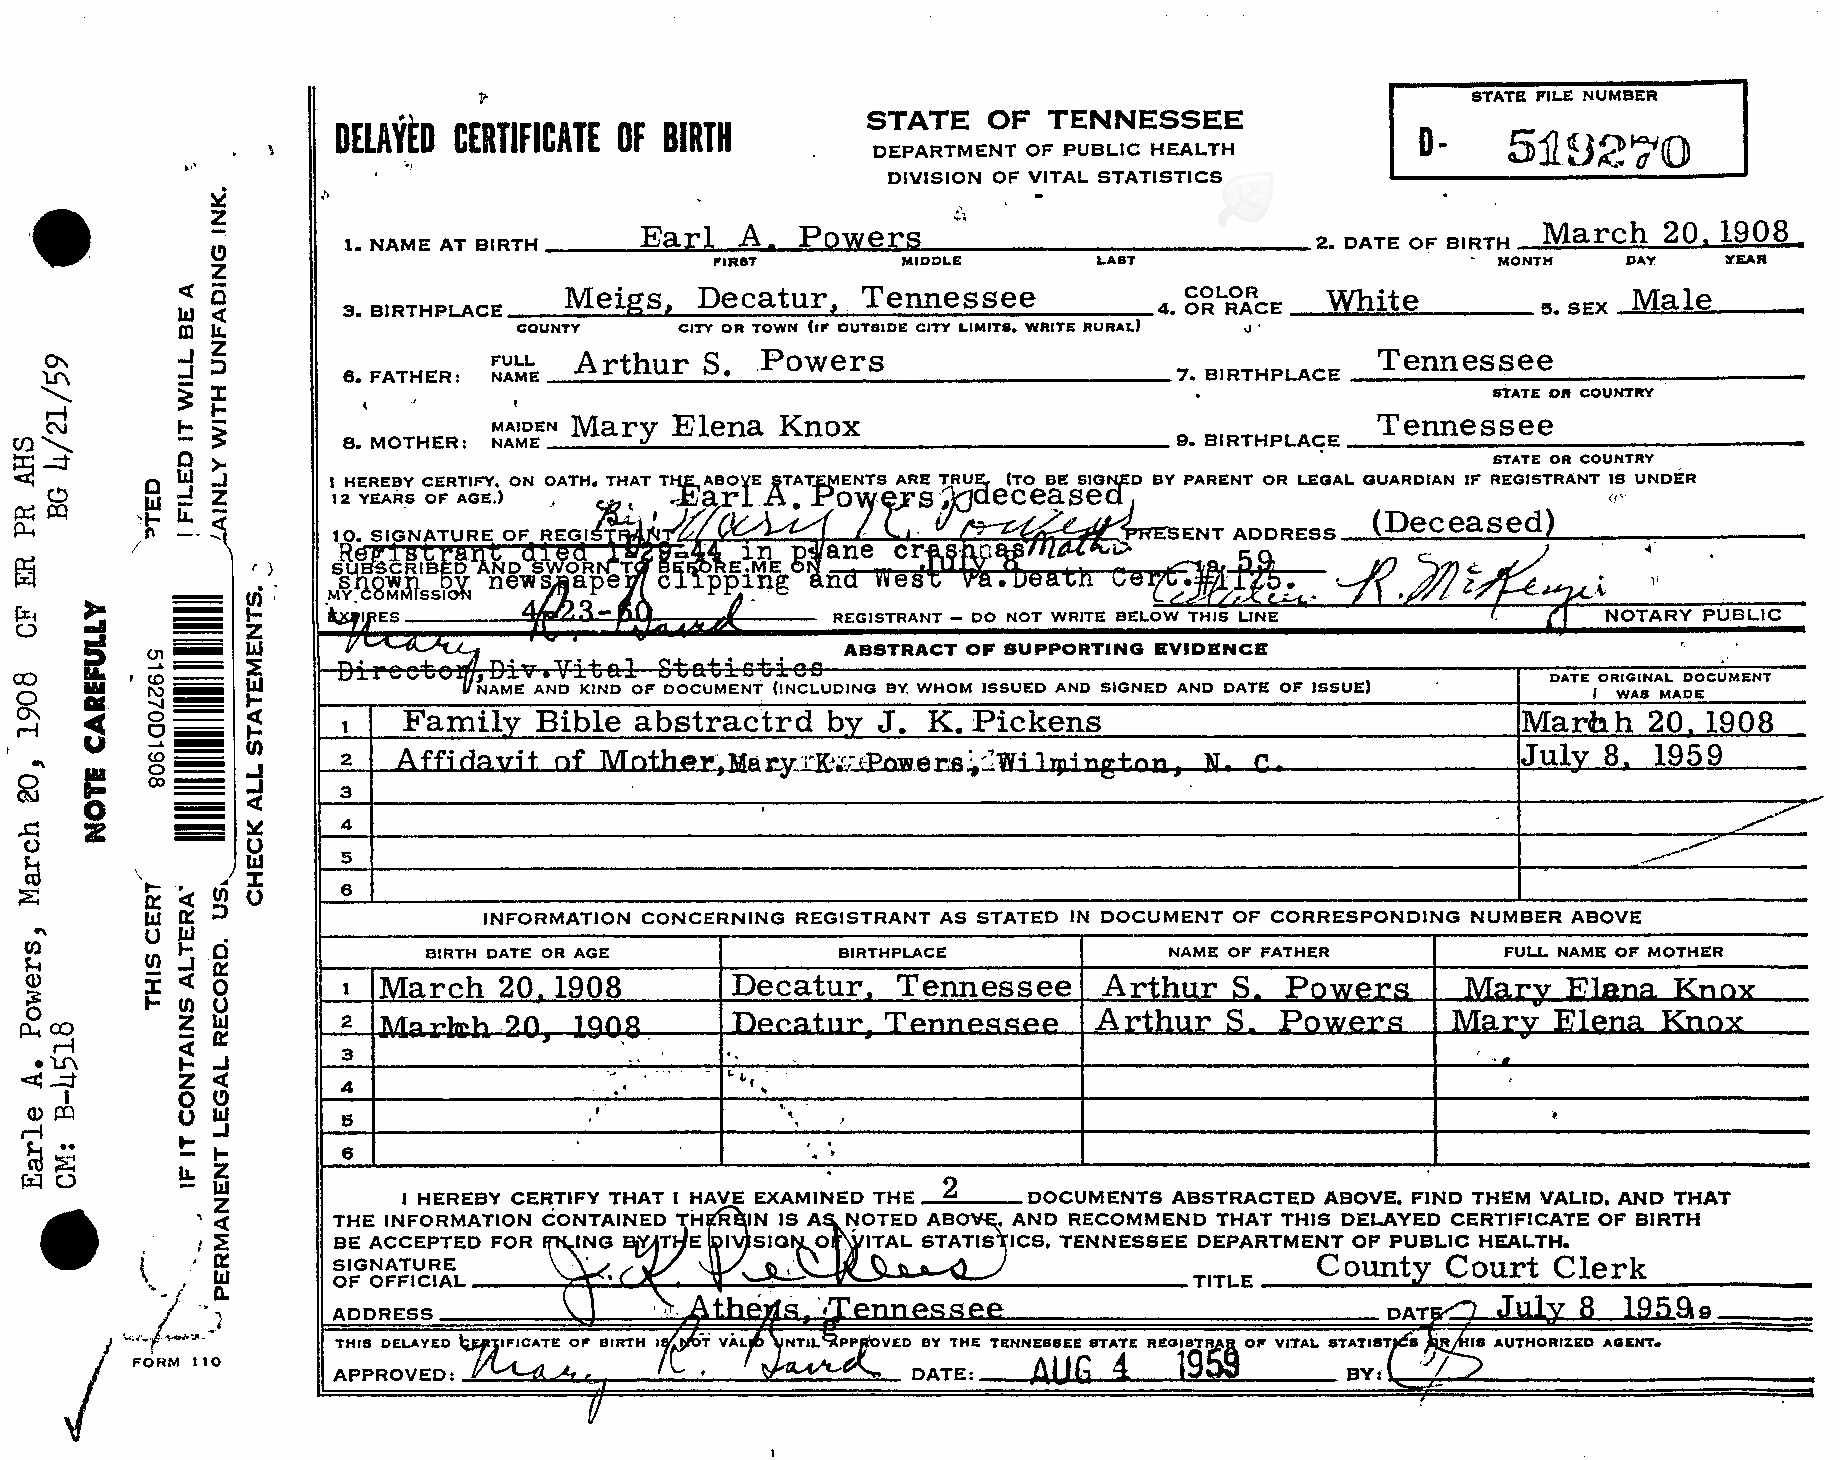 STATE FILE NUMBER
DELAYED CERTIFICATE OF BIRTH
STATE OF TENNESSEE
DEPARTMENT OF PUBLIC HEALTH
DIVISION OF VITAL STATISTICS
D- 519270
1. NAME AT BIRTH Earl A. Powers 2. DATE OF BIRTH March 20, 1908
FIRST MIDDLE LAST MONTH DAY YEAR
3. BIRTHPLACE Meigs, Decatur, Tennessee 4. COLOR OR RACE White 5. SEX Male
COUNTY CITY OR TOWN (IF OUTSIDE CITY LIMITS, WRITE RURAL)
6. FATHER: FULL NAME Arthur S. Powers 7. BIRTHPLACE Tennessee
STATE OR COUNTRY
8. MOTHER: MAIDEN NAME Mary Elena Knox 9. BIRTHPLACE Tennessee
STATE OR COUNTRY
I HEREBY CERTIFY, ON OATH, THAT THE ABOVE STATEMENTS ARE TRUE. (TO BE SIGNED BY PARENT OR LEGAL GUARDIAN IF REGISTRANT IS UNDER
12 YEARS OF AGE.) Earl A. Powers, deceased,
10. SIGNATURE OF REGISTRANT By: Mary K. Powers Mother PRESENT ADDRESS (Deceased)
Registrant died 1-29-44 in plane crash as
SUBSCRIBED AND SWORN TO BEFORE ME ON July 8 19 59
shown by newspaper clipping and West Va. Death Cert. #1125.
MY COMMISSION
EXPIRES 4-23-60 R. McKenzie
REGISTRANT – DO NOT WRITE BELOW THIS LINE NOTARY PUBLIC
Mary R. Baird
ABSTRACT OF SUPPORTING EVIDENCE
Director, Div. Vital Statistics
NAME AND KIND OF DOCUMENT (INCLUDING BY WHOM ISSUED AND SIGNED AND DATE OF ISSUE) DATE ORIGINAL DOCUMENT
WAS MADE
1 Family Bible abstractrd by J. K. Pickens March 20, 1908
2 Affidavit of Mother, Mary K. Powers, Wilmington, N. C. July 8, 1959
3
4
5
6
INFORMATION CONCERNING REGISTRANT AS STATED IN DOCUMENT OF CORRESPONDING NUMBER ABOVE
BIRTH DATE OR AGE BIRTHPLACE NAME OF FATHER FULL NAME OF MOTHER
1 March 20, 1908 Decatur, Tennessee Arthur S. Powers Mary Elena Knox
2 March 20, 1908 Decatur, Tennessee Arthur S. Powers Mary Elena Knox
3
4
5
6
I HEREBY CERTIFY THAT I HAVE EXAMINED THE 2 DOCUMENTS ABSTRACTED ABOVE, FIND THEM VALID, AND THAT
THE INFORMATION CONTAINED THEREIN IS AS NOTED ABOVE, AND RECOMMEND THAT THIS DELAYED CERTIFICATE OF BIRTH
BE ACCEPTED FOR FILING BY THE DIVISION OF VITAL STATISTICS, TENNESSEE DEPARTMENT OF PUBLIC HEALTH.
SIGNATURE
OF OFFICIAL J. K. Pickens TITLE County Court Clerk
ADDRESS Athens, Tennessee DATE July 8 1959 19
THIS DELAYED CERTIFICATE OF BIRTH IS NOT VALID UNTIL APPROVED BY THE TENNESSEE STATE REGISTRAR OF VITAL STATISTICS OR HIS AUTHORIZED AGENT.
APPROVED: Mary R. Baird DATE: AUG 4 1959 BY:
FORM 110
Earle A. Powers, March 20, 1908 CF ER PR AHS
CM: B-4518 BG 4/21/59
NOTE CAREFULLY
THIS CERT PTED
519270D1908
IF IT CONTAINS ALTERA FILED IT WILL BE A
PERMANENT LEGAL RECORD. US AINLY WITH UNFADING INK.
CHECK ALL STATEMENTS.